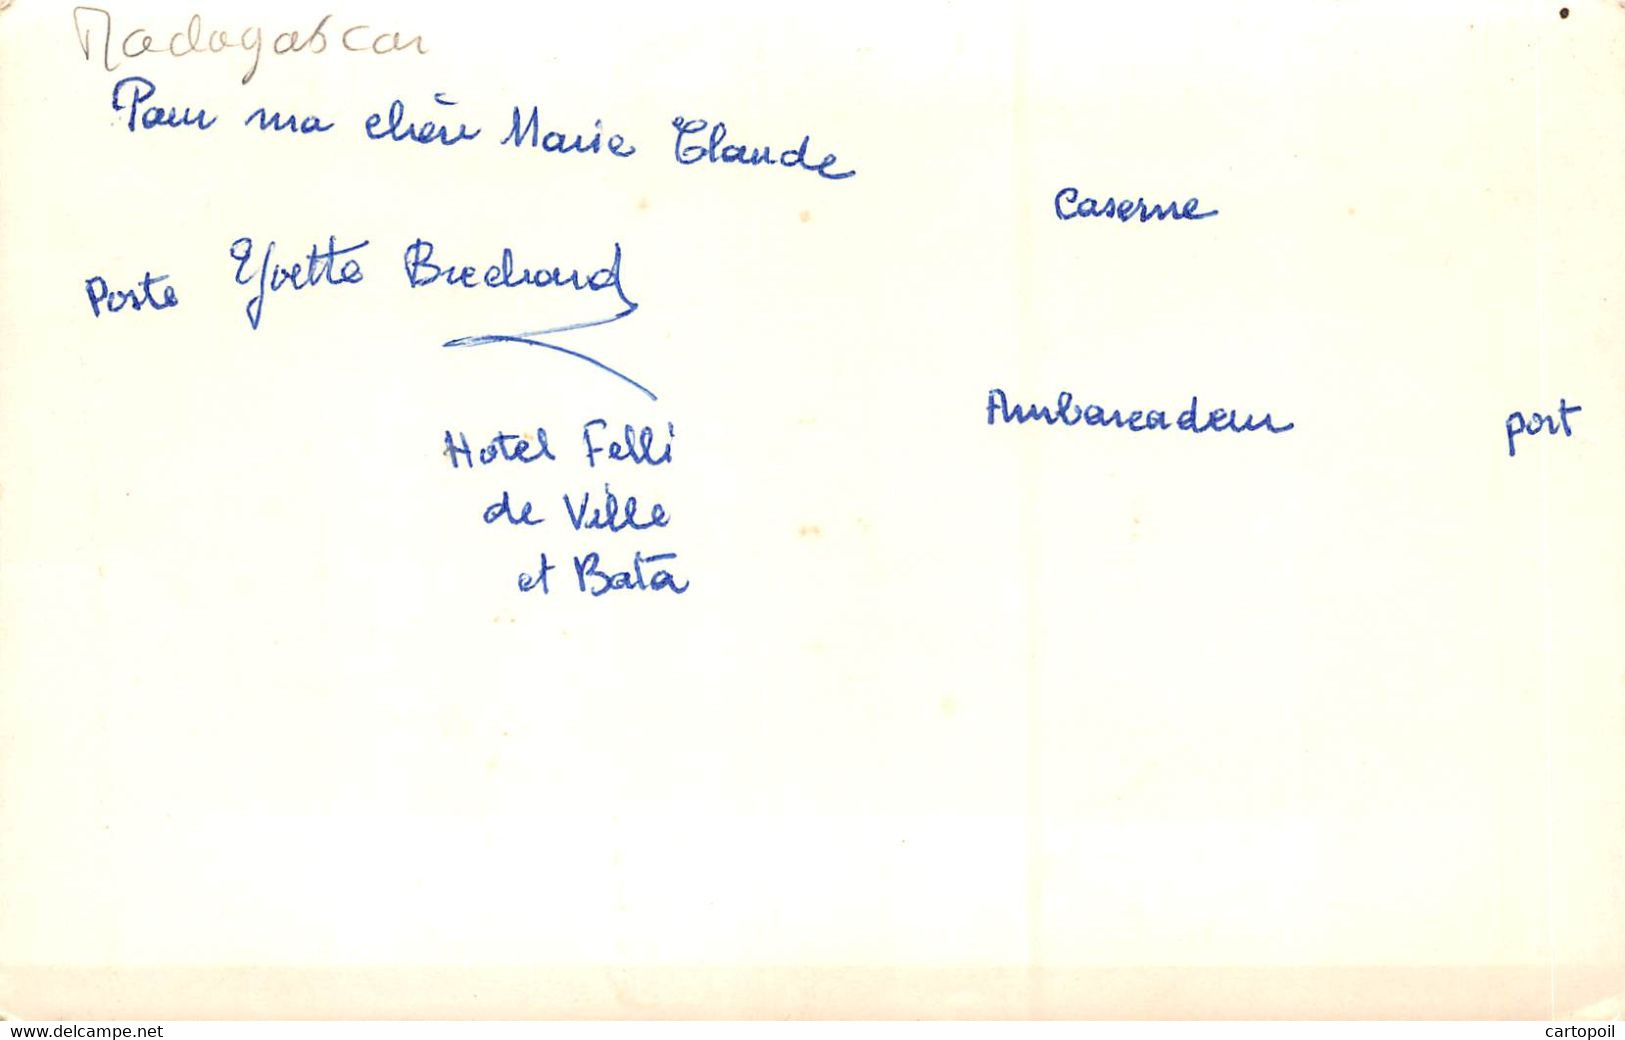 Madagascar
Pour ma chère Marie Claude
Caserne
Poste Yvette Brechard
Ambarcadeur port
Hotel Felli
de Ville
et Bata
www.delcampe.net cartopoil